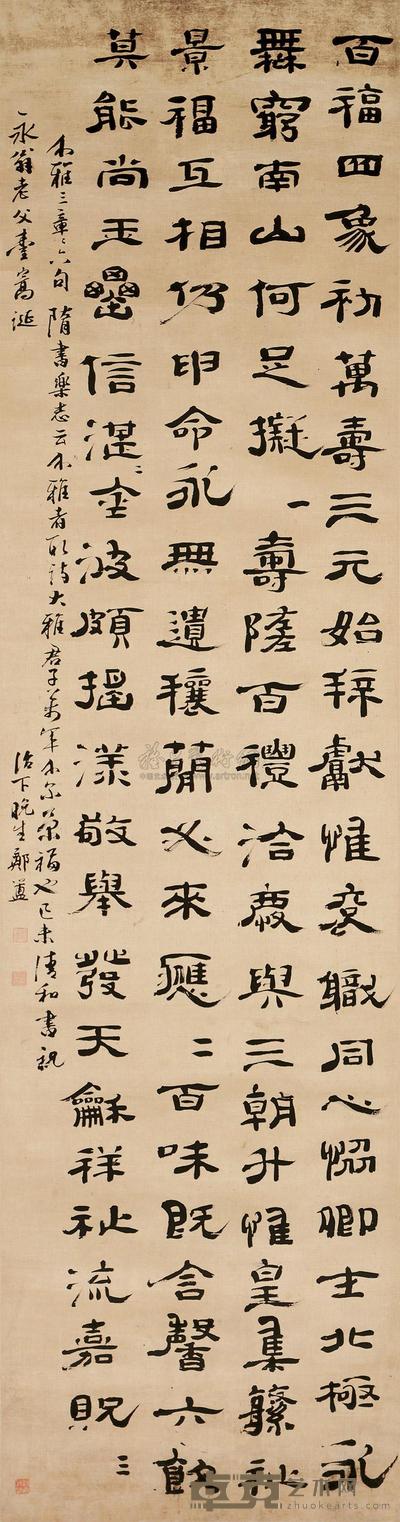 百福四象初萬壽三元始拜獻惟袞職同心協卿士北極永
無窮南山何足擬一壽隨百禮洽慶與三朝升惟皇集繁祉
景福互相仍申命永無遺穰簡必來應二百味既含馨六飲
莫能尚玉罍信湛〻金波頗搖漾敬舉發天龢祥祉流嘉貺三
介雅三章〻六句 隋書樂志云介雅者取詩大雅君子萬年介尔景福也己未清和書祝
永翁老父臺嵩誕
治下晚生鄭簠
卓克艺术网
zhuokearts.com